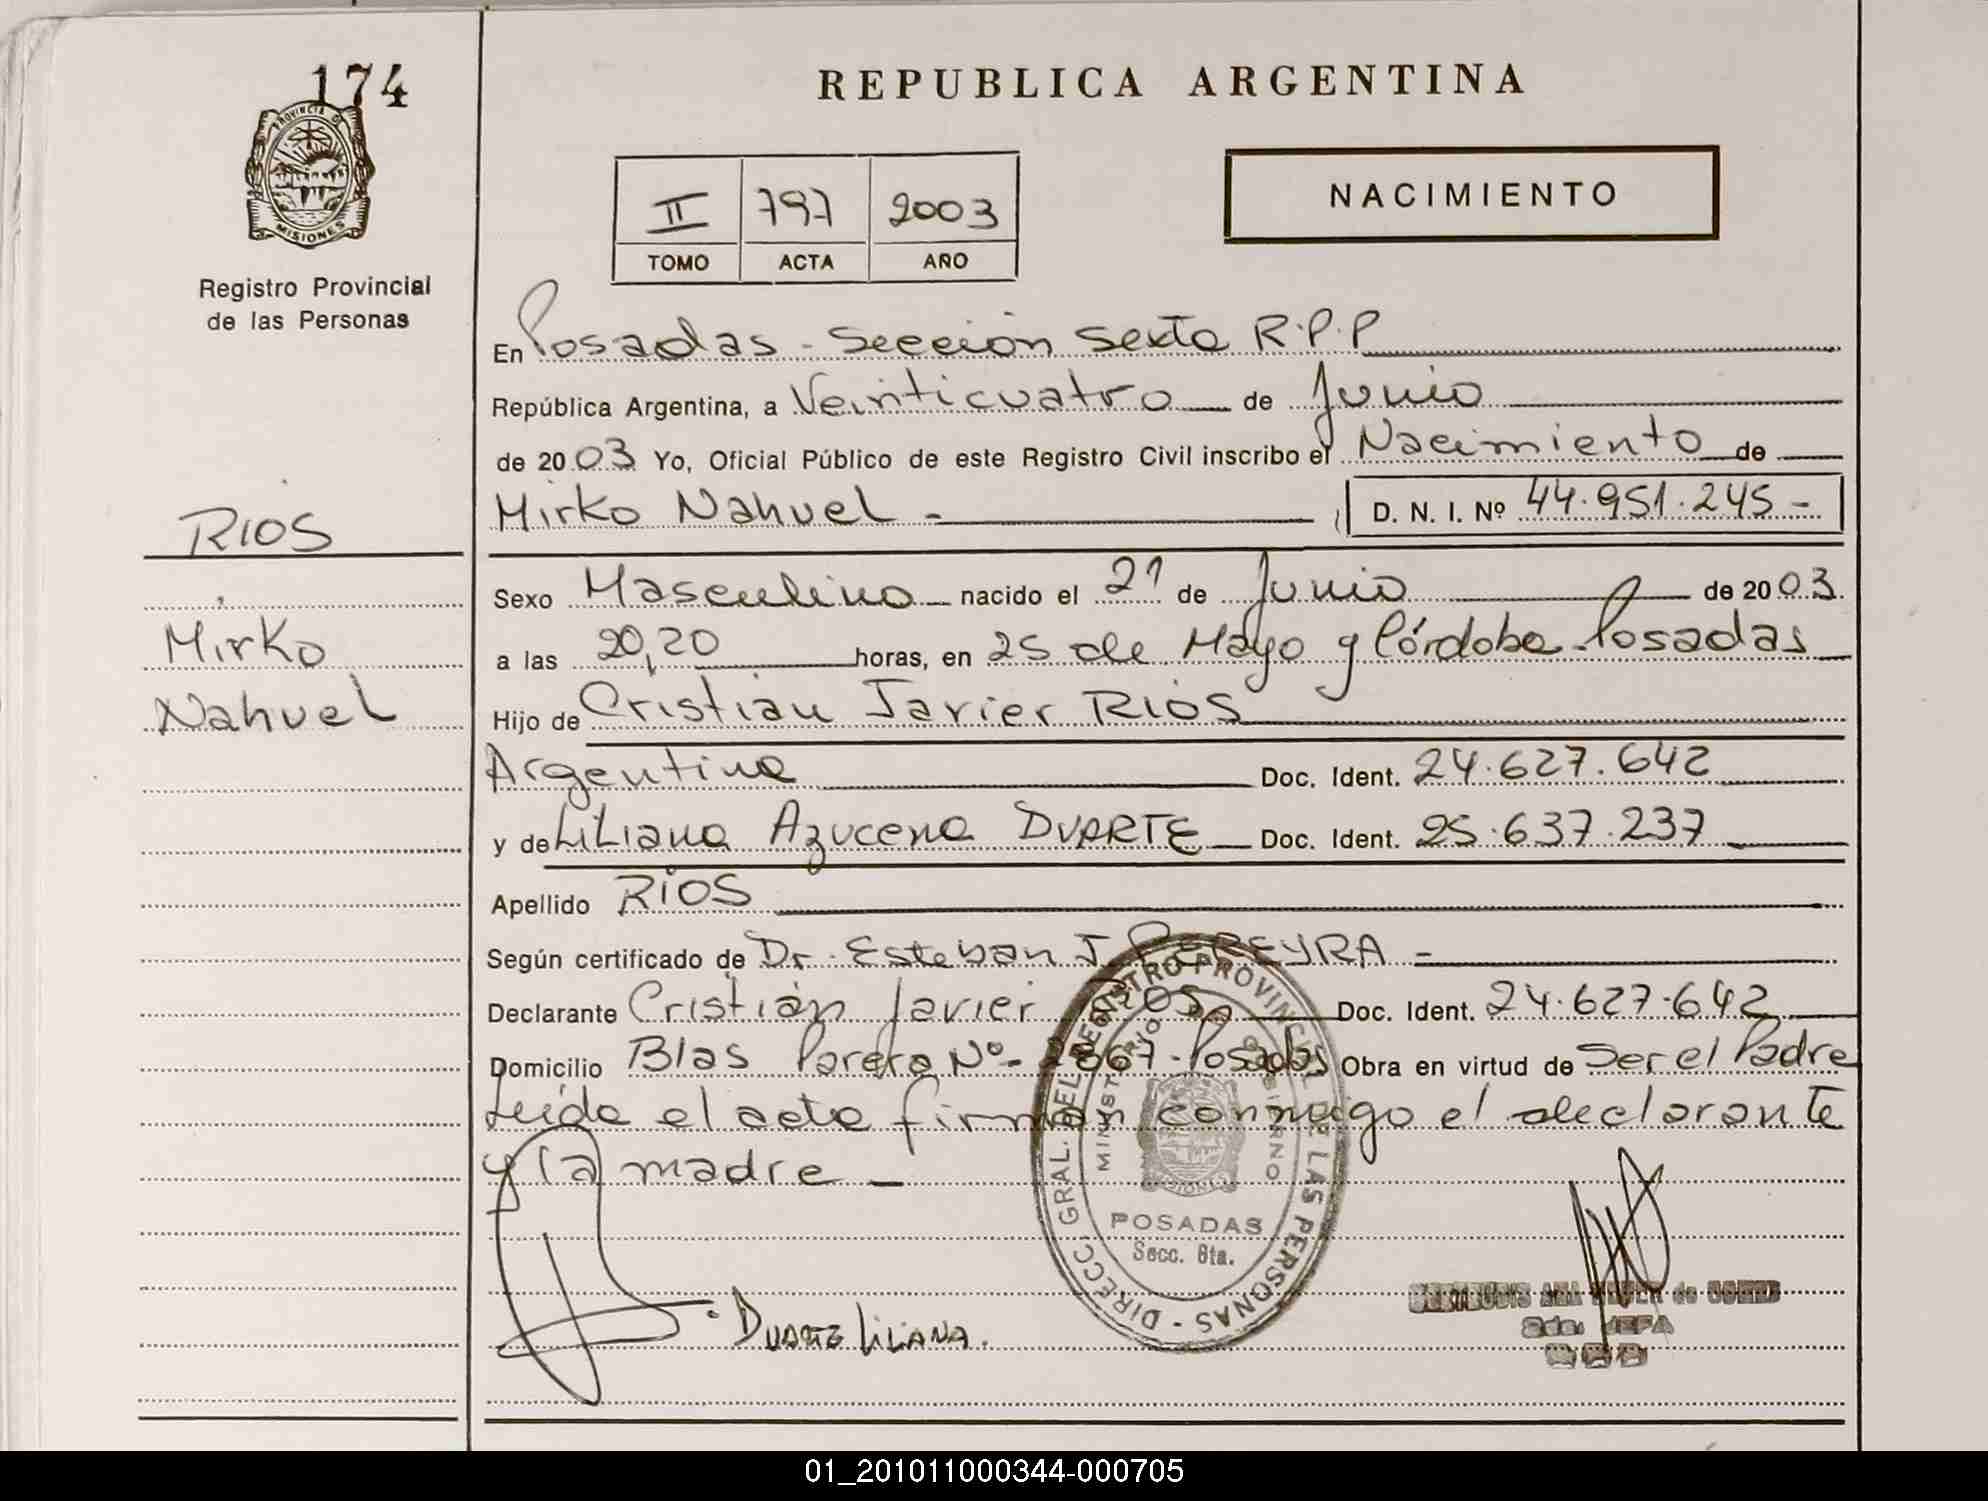 174
PROVINCIA DE
MISIONES
Registro Provincial
de las Personas
RIOS
Mirko
Nahuel
REPUBLICA ARGENTINA
II 797 2003
TOMO ACTA AÑO
NACIMIENTO
En Posadas - Sección Sexta R.P.P
República Argentina, a Veinticuatro de Junio
de 2003 Yo, Oficial Público de este Registro Civil inscribo el Nacimiento de
Mirko Nahuel - D. N. I. Nº 44.951.245 -
Sexo Masculino nacido el 21 de Junio de 2003
a las 20,20 horas, en 25 de Mayo y Córdoba - Posadas
Hijo de Cristian Javier RIOS
Argentina Doc. Ident. 24.627.642
y de Liliana Azucena DUARTE Doc. Ident. 25.637.237
Apellido RIOS
Según certificado de Dr. Esteban J. PEREYRA -
Declarante Cristián Javier RIOS Doc. Ident. 24.627.642
Domicilio Blas Parera Nº 867 - Posadas Obra en virtud de Ser el Padre
Leída el acta firman conmigo el declarante
y la madre -
DIRECC. GRAL. DEL REGISTRO PROVINCIAL DE LAS PERSONAS -
MINISTERIO DE GOBIERNO
MISIONES
POSADAS
Secc. 6ta.
DUARTE LILIANA.
GERTRUDIS ANA de GOMEZ
2da. JEFA
01_201011000344-000705